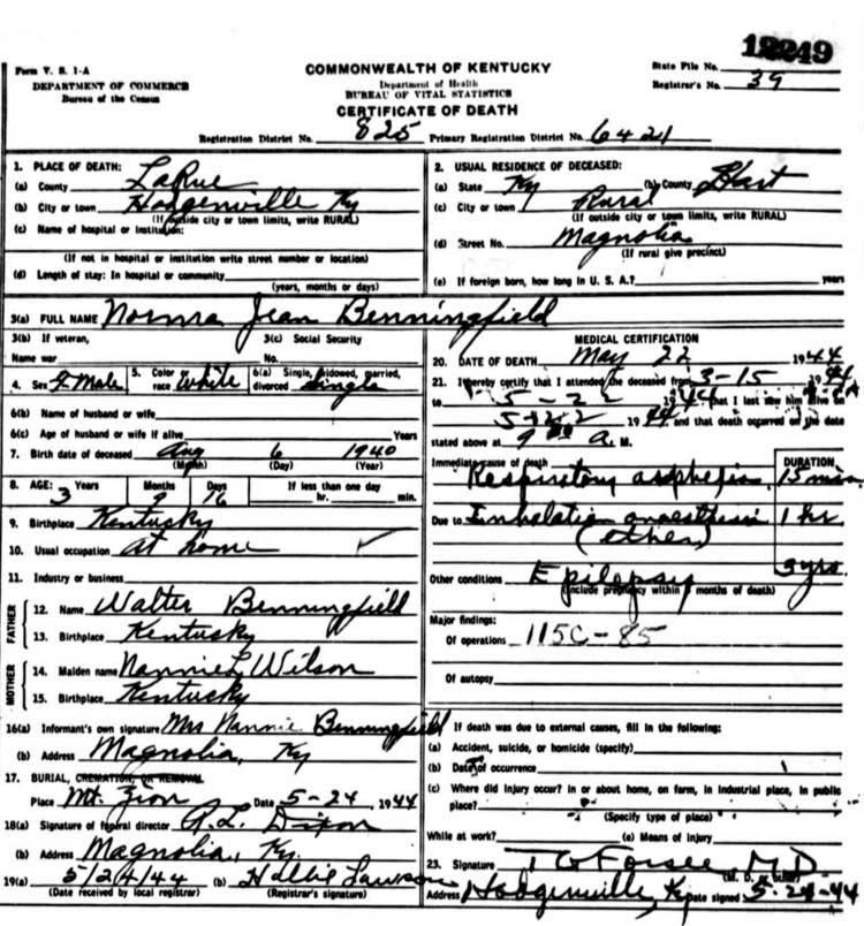 12249
Form V. S. 1-A
DEPARTMENT OF COMMERCE
Bureau of the Census
COMMONWEALTH OF KENTUCKY
Department of Health
BUREAU OF VITAL STATISTICS
CERTIFICATE OF DEATH
State File No.
Registrar's No. 39
Registration District No. 825 Primary Registration District No. 6421
1. PLACE OF DEATH:
(a) County LaRue
(b) City or town Hodgenville Ky
(If outside city or town limits, write RURAL)
(c) Name of hospital or institution:
(If not in hospital or institution write street number or location)
(d) Length of stay: In hospital or community
(years, months or days)
2. USUAL RESIDENCE OF DECEASED:
(a) State Ky (b) County Hart
(c) City or town Rural
(If outside city or town limits, write RURAL)
(d) Street No. Magnolia
(If rural give precinct)
(e) If foreign born, how long in U. S. A.? years
3(a) FULL NAME Norma Jean Benningfield
3(b) If veteran,
Name war
3(c) Social Security
No.
4. Sex 5. Color or race White 6(a) Single, widowed, married, divorced Single
6(b) Name of husband or wife
6(c) Age of husband or wife if alive Years
7. Birth date of deceased Aug 6 1940
(Month) (Day) (Year)
8. AGE: Years 3 Months 9 Days 16 If less than one day
hr. min.
9. Birthplace Kentucky
10. Usual occupation at home
11. Industry or business
FATHER
12. Name Walter Benningfield
13. Birthplace Kentucky
MOTHER
14. Maiden name Nannie L Wilson
15. Birthplace Kentucky
16(a) Informant's own signature Mrs Nannie Benningfield
(b) Address Magnolia, Ky
17. BURIAL, CREMATION, OR REMOVAL
Place Mt. Zion Date 5-24, 1944
18(a) Signature of funeral director R.L. Dixon
(b) Address Magnolia, Ky.
19(a) 5/24/44 (b) Hallie Lawson
(Date received by local registrar) (Registrar's signature)
MEDICAL CERTIFICATION
20. DATE OF DEATH May 22 1944
21. I hereby certify that I attended the deceased from 3-15 1944
to 5-22 1944 that I last saw him alive on
5-22 1944 and that death occurred on the date
stated above at 9 00 A. M.
Immediate cause of death DURATION
Respiratory asphyxia 15 min
Due to Inhalation anaesthesia 1 hr
(ether)
Other conditions Epilepsy 3 yrs
(Include pregnancy within months of death)
Major findings:
Of operations 115C-85
Of autopsy
If death was due to external causes, fill in the following:
(a) Accident, suicide, or homicide (specify)
(b) Date of occurrence
(c) Where did injury occur? In or about home, on farm, in industrial place, in public
place?
(Specify type of place)
While at work? (e) Means of injury
23. Signature T G Forsee, M D
(M. D. or other)
Address Hodgenville, Ky Date signed 5-24-44